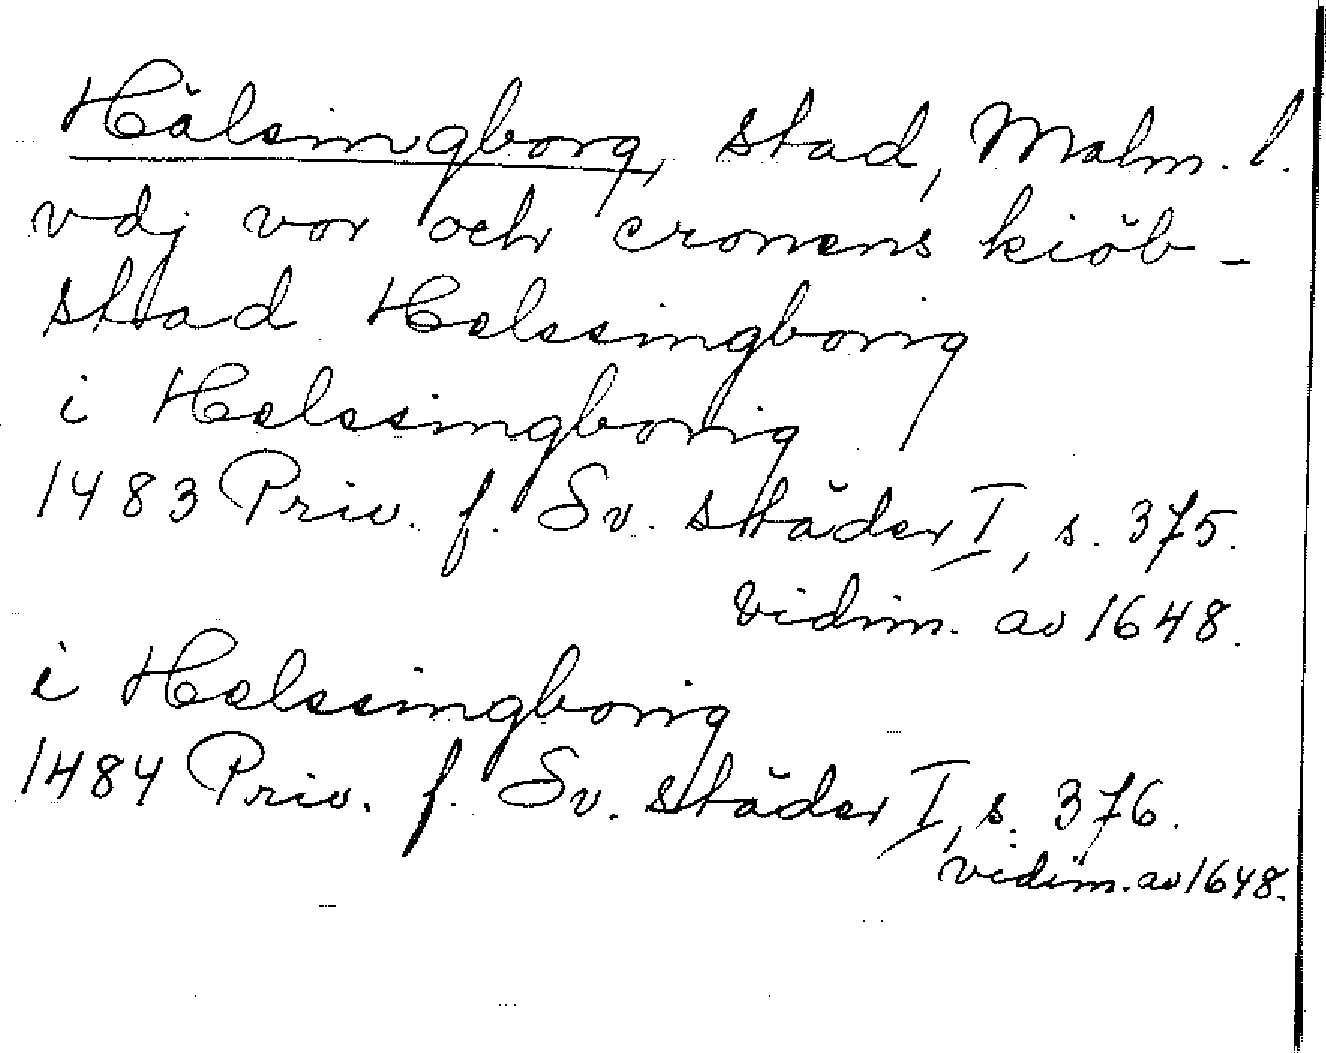 Hälsingborg, stad, Malm. l.
vdj vor och cronens kiöb-
stad Helssingborig
i Helssingborig
1483 Priv. f. Sv. städer I, s. 375.
vidim. av 1648.
i Helssingborig
1484 Priv. f. Sv. städer I, s. 376.
vidim. av 1648.